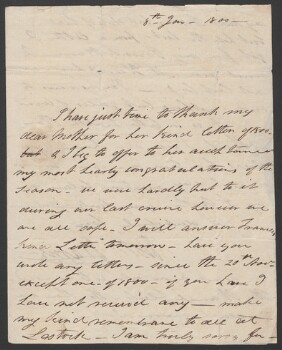 8th Jan - 1800
I have just time to thank my
dear Mother for her kind letter of
but & I beg to offer to her
my most hearty congratulations of the
Season - we were hardly put to it
during our last cruise however we
are safe. I will answer
kind Letter tomorrow - have you
wrote any letters - since the 20th Novr
except one of 1800 - if you have I
have not receiv'd any - make
my kind remembrance to all at
Lostock - I am truly sorry for